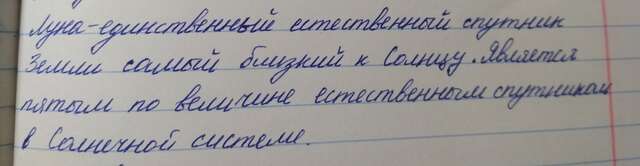 Луна-единственный естественный спутник
Земли самый близкий к Солнцу. Является
пятым по величине естественным спутником
в Солнечной системе.